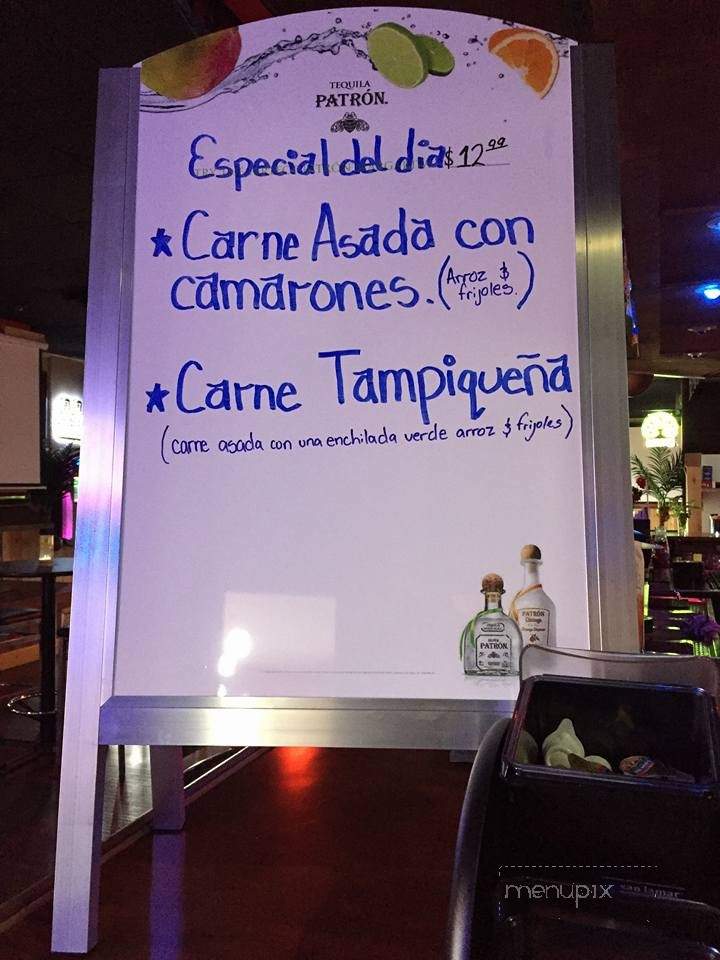 TEQUILA
PATRÓN.
Especial del dia $12.99
★ Carne Asada con
camarones. (Arroz $
frijoles.)
★ Carne Tampiqueña
(carne asada con una enchilada verde arroz $ frijoles)
PATRÓN
PATRÓN
menupix